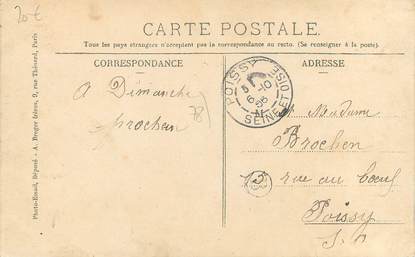 20€
CARTE POSTALE.
Tous les pays étrangers n'acceptent pas la correspondance au recto. (Se renseigner à la poste).
CORRESPONDANCE
ADRESSE
A Dimanche
prochain
78
POISSY
5
6-10
05
SEINE ET OISE
et Madame
Brochen
15 rue au boeuf
Poissy
S. O
Photo-Email, Déposé - A. Breger frères, 9, rue Thénard, Paris